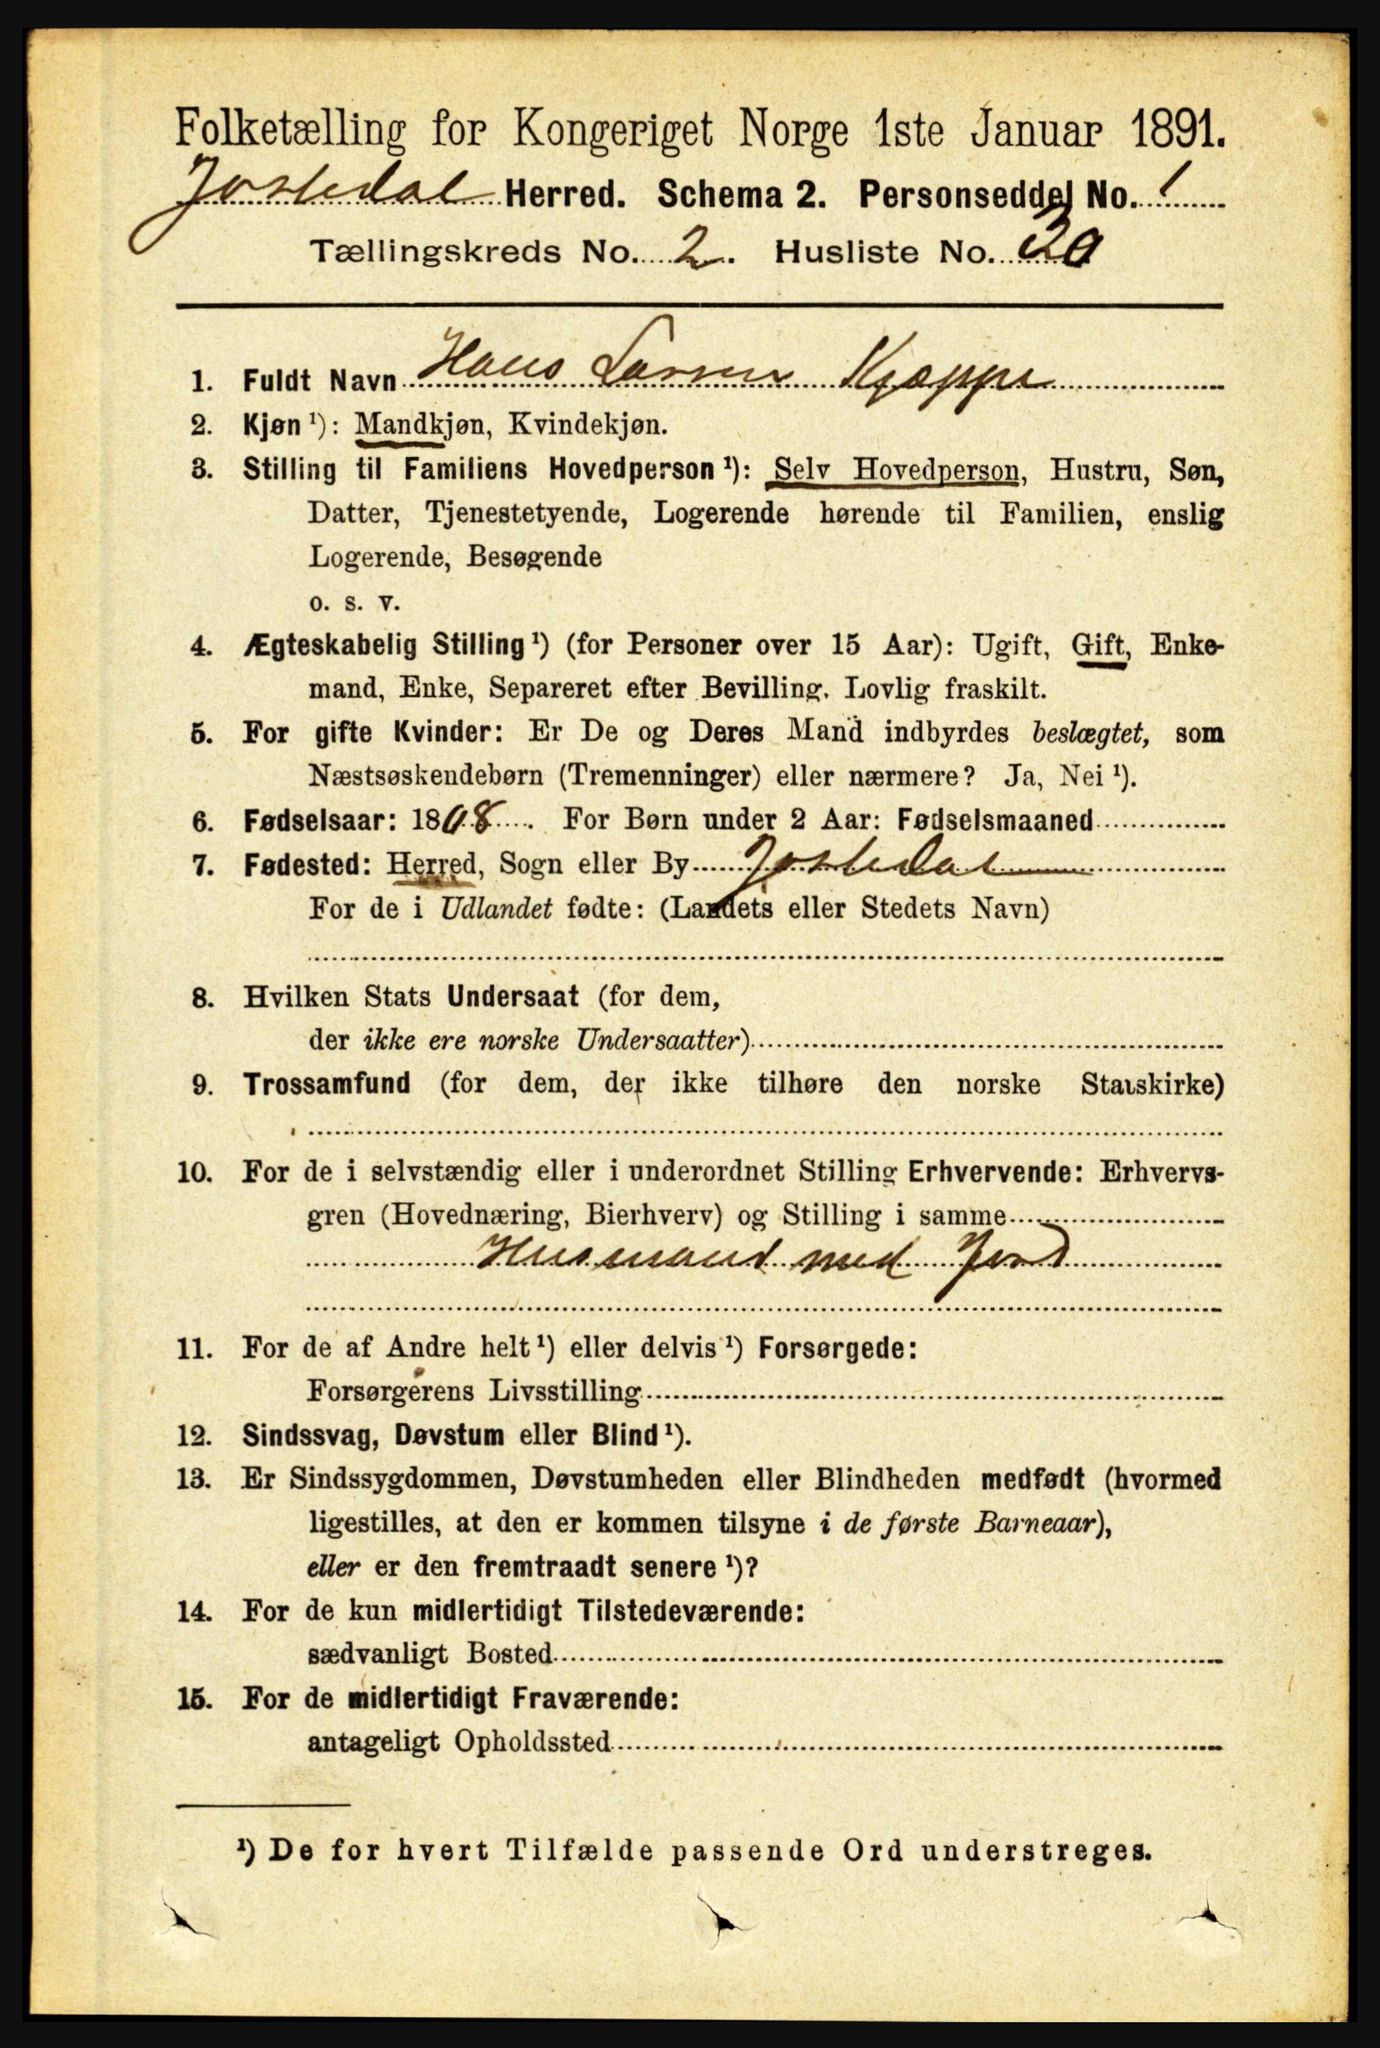 Folketælling for Kongeriget Norge 1ste Januar 1891.
Jostedal Herred. Schema 2. Personseddel No. 1
Tællingskreds No. 2. Husliste No. 30
1. Fuldt Navn Hans Larsen Kjæppe
2. Kjøn ¹): Mandkjøn, Kvindekjøn.
3. Stilling til Familiens Hovedperson ¹): Selv Hovedperson, Hustru, Søn,
Datter, Tjenestetyende, Logerende hørende til Familien, enslig
Logerende, Besøgende
o. s. v.
4. Ægteskabelig Stilling ¹) (for Personer over 15 Aar): Ugift, Gift, Enke-
mand, Enke, Separeret efter Bevilling. Lovlig fraskilt.
5. For gifte Kvinder: Er De og Deres Mand indbyrdes beslægtet, som
Næstsøskendebørn (Tremenninger) eller nærmere? Ja, Nei ¹).
6. Fødselsaar: 1808. For Børn under 2 Aar: Fødselsmaaned
7. Fødested: Herred, Sogn eller By Jostedal
For de i Udlandet fødte: (Landets eller Stedets Navn)
8. Hvilken Stats Undersaat (for dem,
der ikke ere norske Undersaatter)
9. Trossamfund (for dem, der ikke tilhøre den norske Statskirke)
10. For de i selvstændig eller i underordnet Stilling Erhvervende: Erhvervs-
gren (Hovednæring, Bierhverv) og Stilling i samme
Husmand med Jord
11. For de af Andre helt ¹) eller delvis ¹) Forsørgede:
Forsørgerens Livsstilling
12. Sindssvag, Døvstum eller Blind ¹).
13. Er Sindssygdommen, Døvstumheden eller Blindheden medfødt (hvormed
ligestilles, at den er kommen tilsyne i de første Barneaar),
eller er den fremtraadt senere ¹)?
14. For de kun midlertidigt Tilstedeværende:
sædvanligt Bosted
15. For de midlertidigt Fraværende:
antageligt Opholdssted
¹) De for hvert Tilfælde passende Ord understreges.